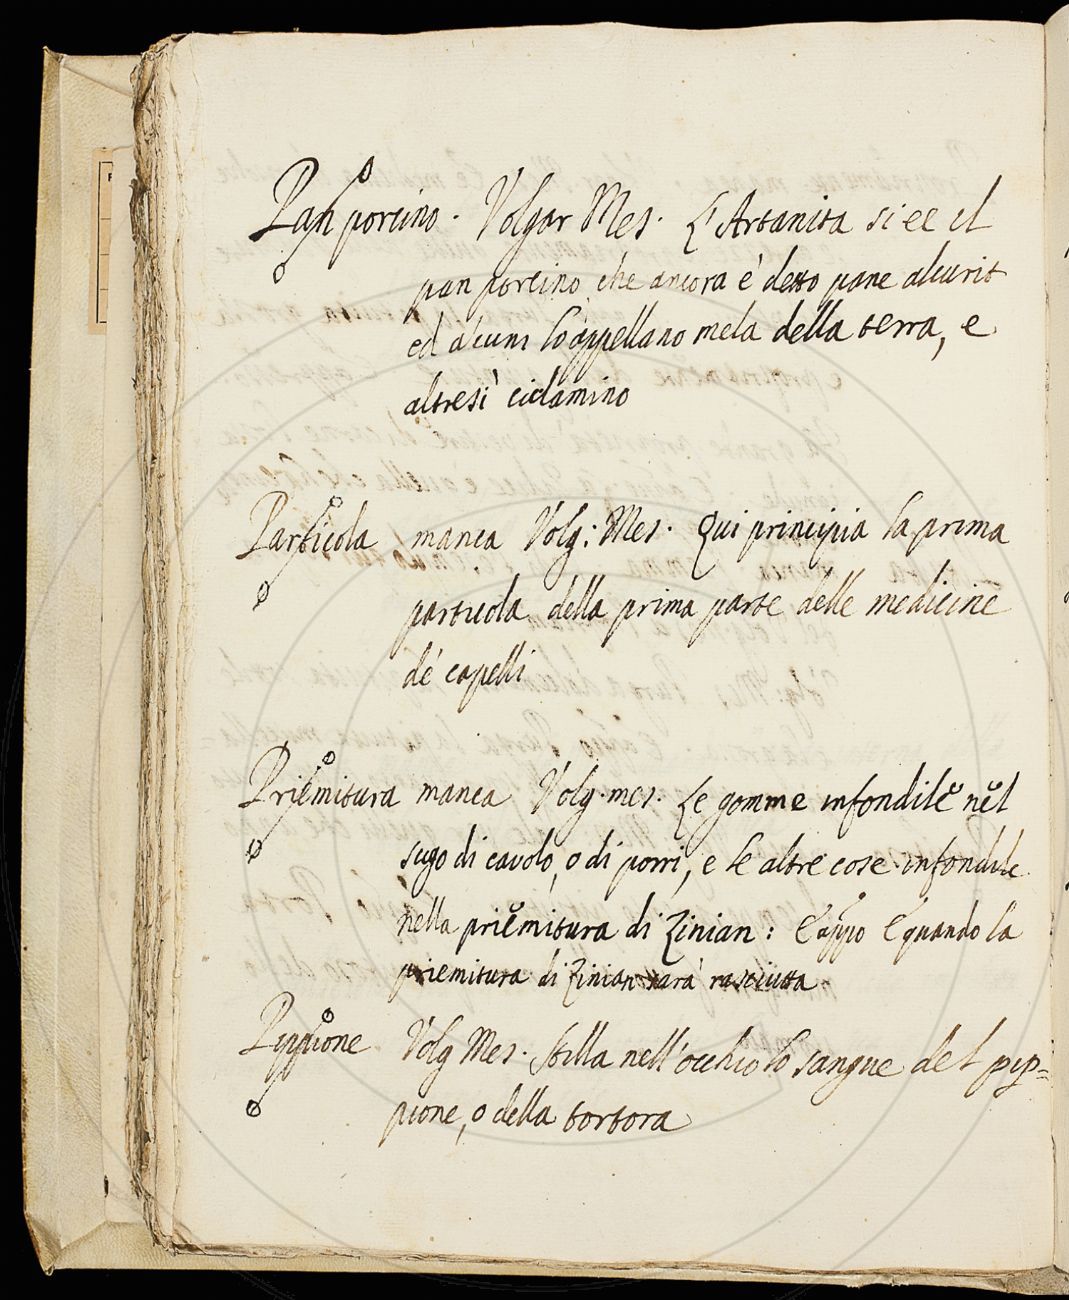 Pan porcino. Volgar Mes. L'Artanita si ee il
pan porcino che ancora è detto pane alcurit
ed alcuni lo appellano mela della terra, e
altresi' ciclamino
Particola manca Volg: Mes. Qui principia la prima
particola della prima parte delle medicine
de' capelli
Priemitura manca Volg. mes. Le gomme infondile nel
sugo di cavolo, o di porri, e le altre cose infondile
nella priemitura di Zinian: E appo E quando la
priemitura di Zinian sarà rasciutta
Pippione Volg Mes. Stilla nell'occhio lo sangue del pip=
pione, o della tortora